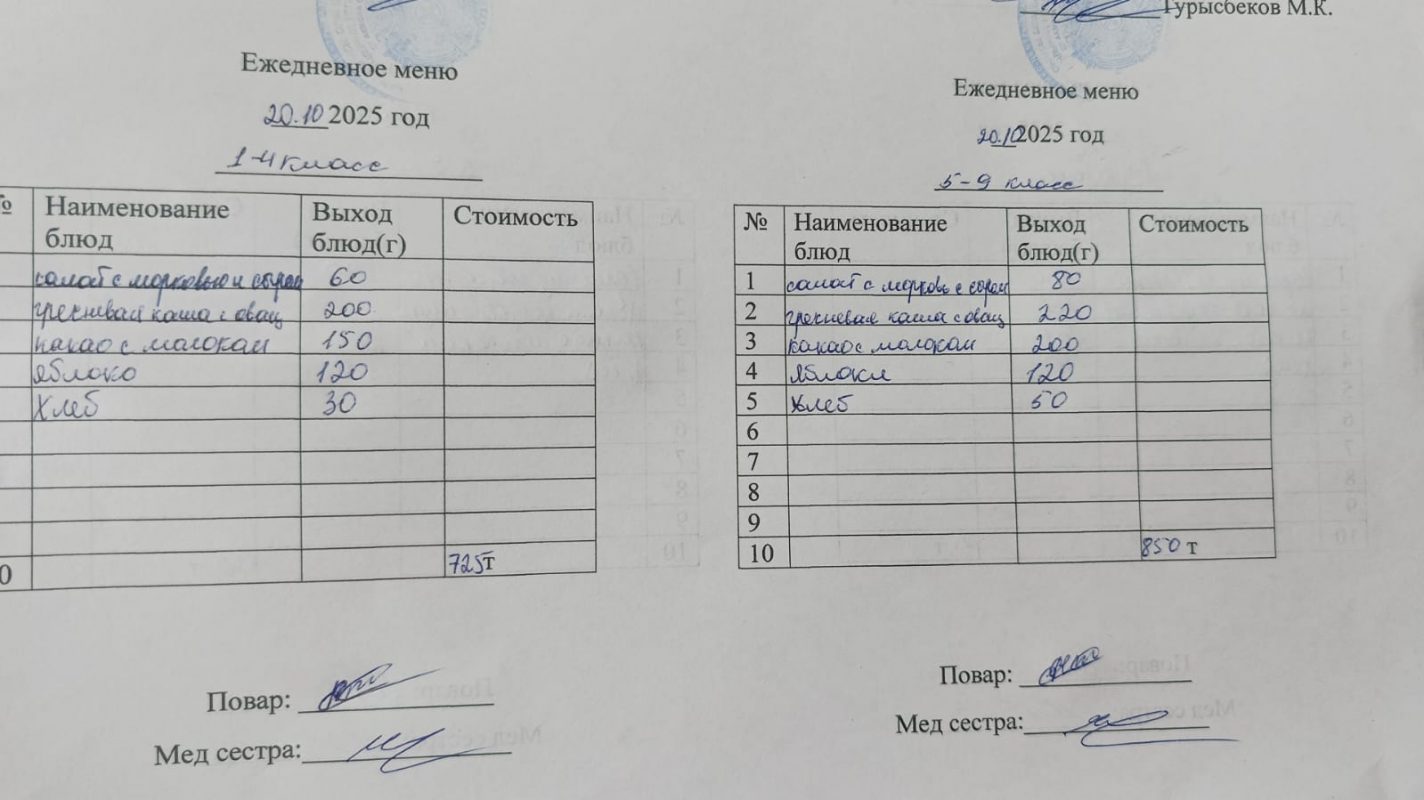 Турысбеков М.К.
Ежедневное меню
20.10 2025 год
1-4 класс
№ Наименование блюд Выход блюд(г) Стоимость
салат с морковью и сыром 60
гречневая каша с овощ 200
какао с молоком 150
яблоко 120
Хлеб 30
0 725т
Повар:
Мед сестра:
Ежедневное меню
20.10 2025 год
5-9 класс
№ Наименование блюд Выход блюд(г) Стоимость
1 салат с морковь с сыром 80
2 гречневая каша с овощ 220
3 какао с молоком 200
4 яблоки 120
5 хлеб 50
6
7
8
9
10 850 т
Повар:
Мед сестра: